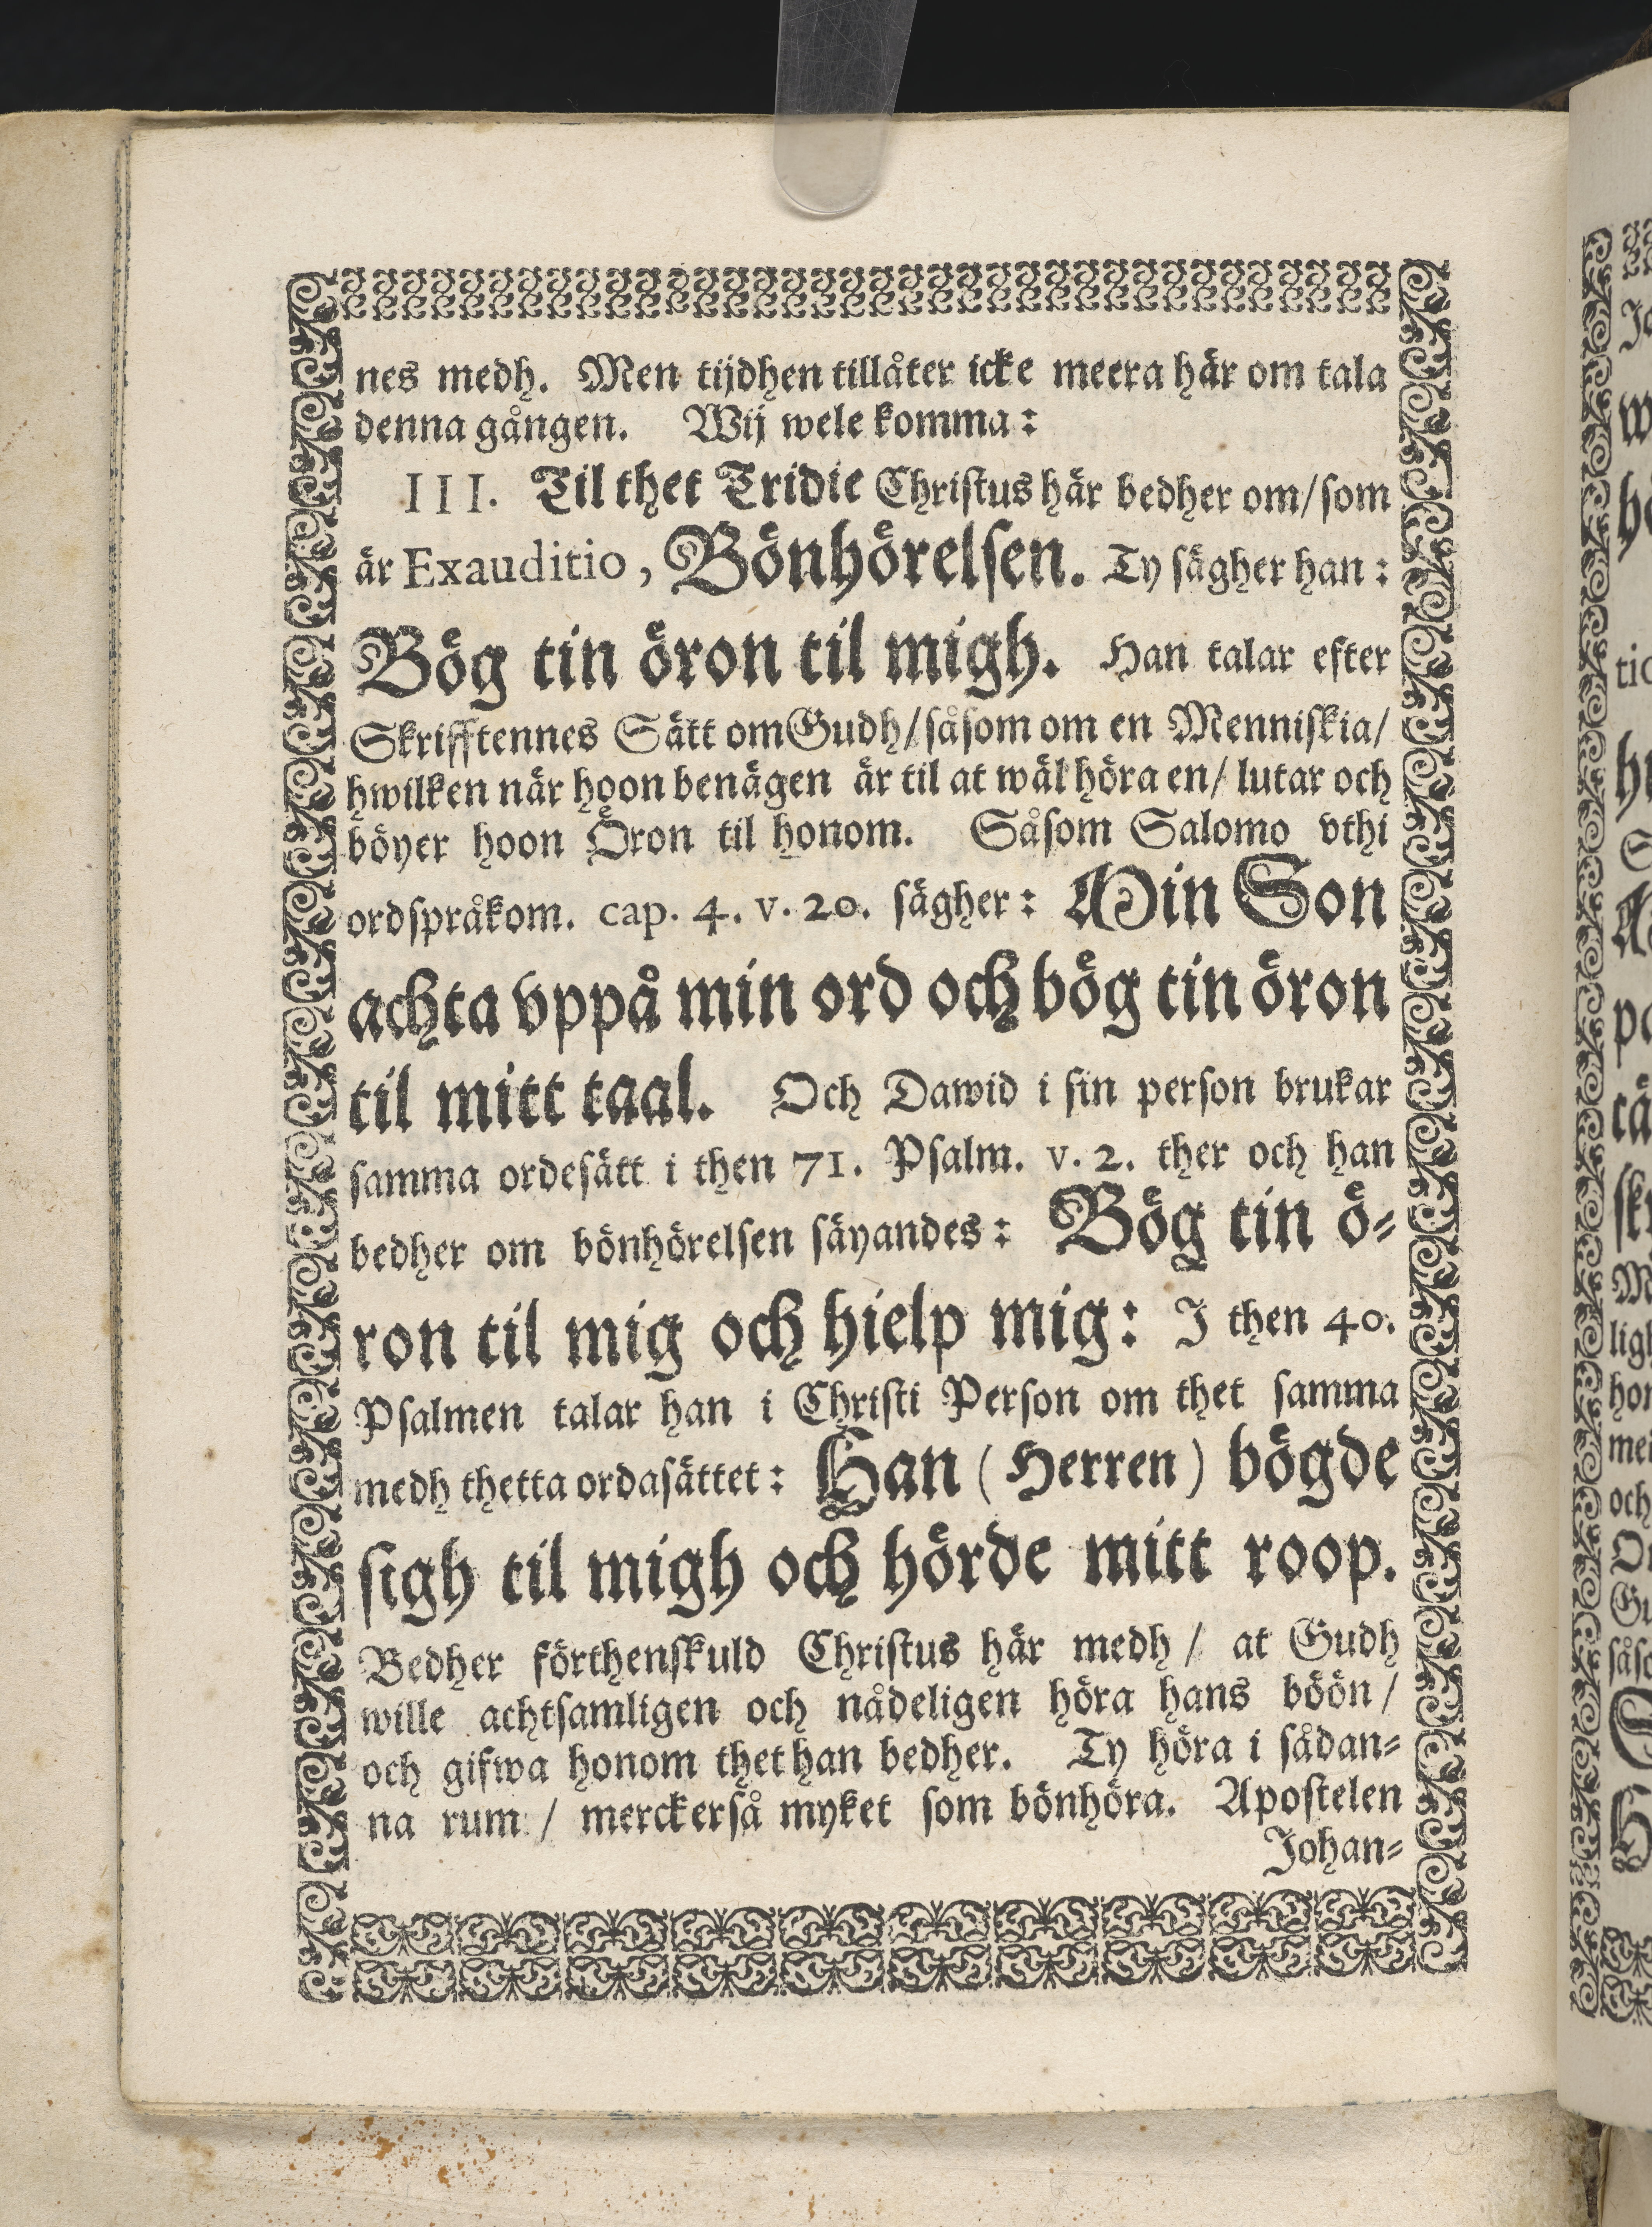 nes medh. Men tijdhen tillåter icke meera här om tala
denna gången. Wij wele komma:
III. Til thet Tridie Christus här bedher om/som
är Exauditio, Bönhörelsen. Ty sägher han:
Bög tin öron til migh. Han talar efter
Skrifftennes Sätt om Gudh/såsom om en Menniskia/
hwilken när hoon benägen är til at wäl höra en/ lutar och
böyer hoon Öron til honom. Såsom Salomo vthi
ordspråkom. cap. 4. v. 20. sägher: Min Son
achta vppå min ord och bög tin öron
til mitt taal. Och Dawid i sin person brukar
samma ordesätt i then 71. Psalm. v. 2. ther och han
bedher om bönhörelsen säyandes: Bög tin ö-
ron til mig och hielp mig: I then 40.
Psalmen talar han i Christi Person om thet samma
medh thetta ordasättet: Han (Herren) bögde
sigh til migh och hörde mitt roop.
Bedher förthenskuld Christus här medh / at Gudh
wille achtsamligen och nådeligen höra hans böön/
och gifwa honom thet han bedher. Ty höra i sådan-
na rum / merckerså myket som bönhöra. Apostelen
Johan-